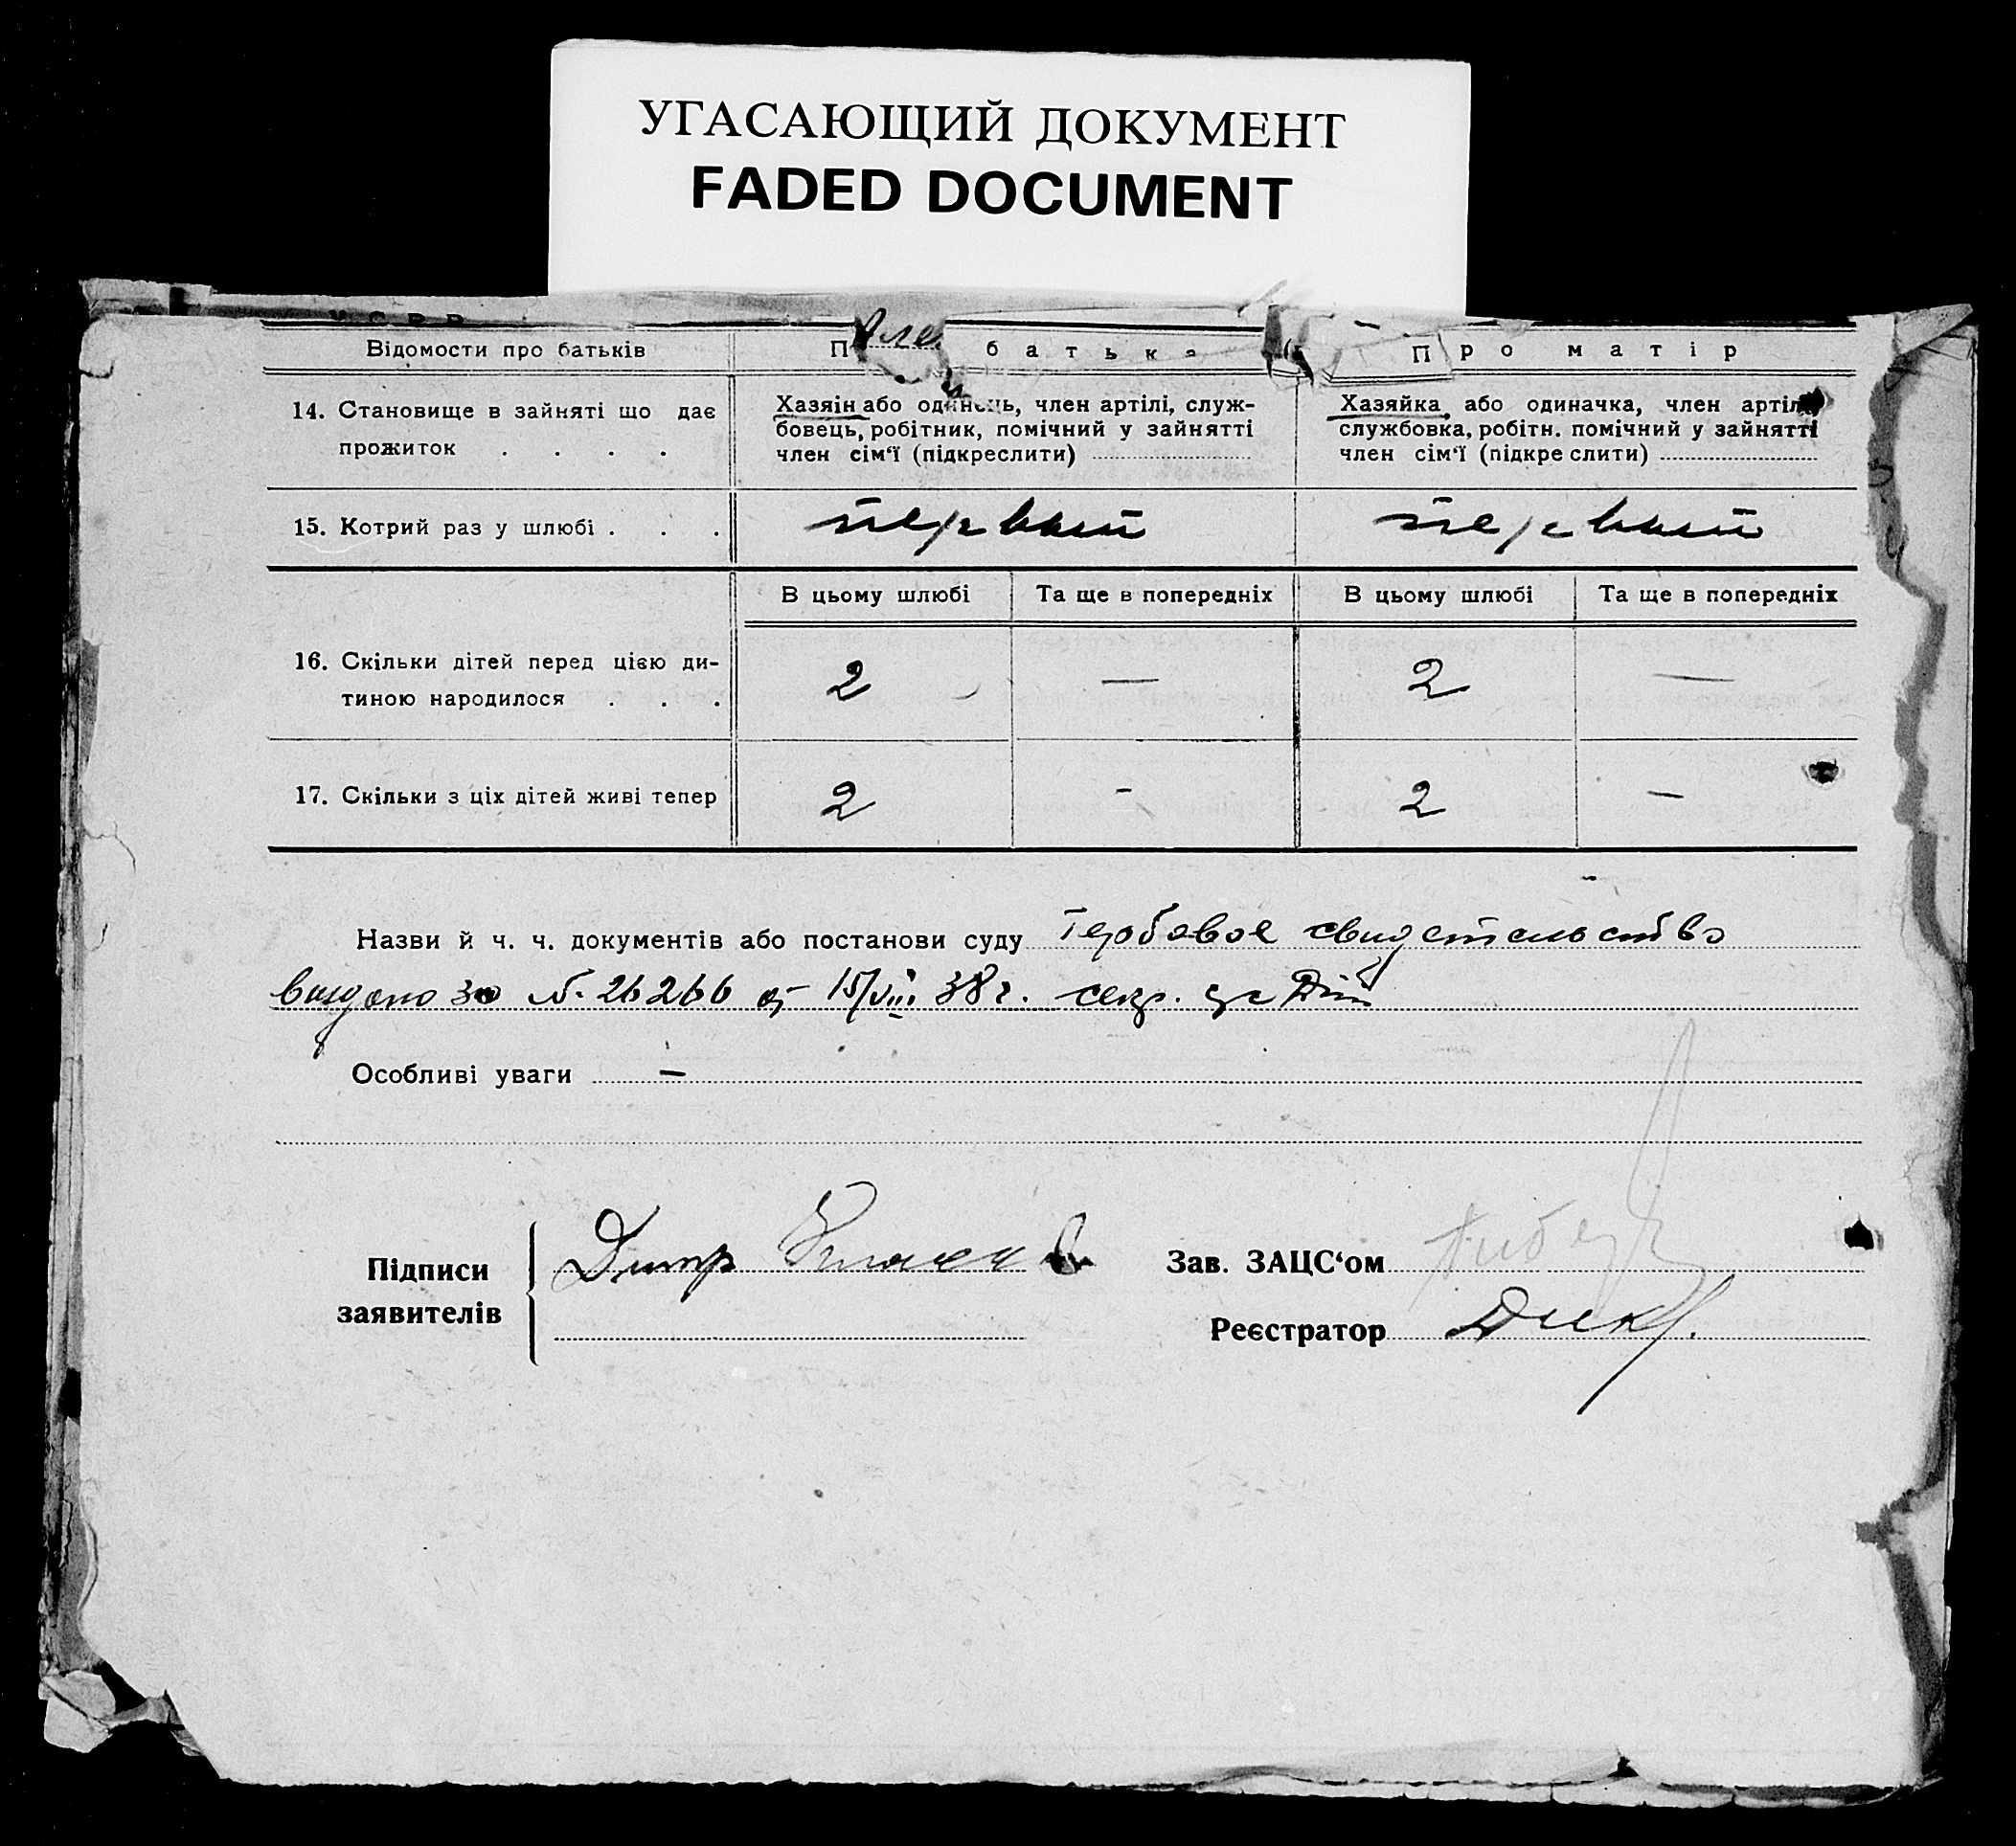 УГАСАЮЩИЙ ДОКУМЕНТ
FADED DOCUMENT
Відомости про батьків
П батька
Про матір
14. Становище в зайняті що дає
прожиток . . . .
Хазяін або одинець, член артілі, служ-
бовець, робітник, помічний у зайнятті
член сім‘ї (підкреслити)
Хазяйка або одиначка, член артілі
службовка, робітн. помічний у зайнятті
член сім‘ї (підкре слити)
15. Котрий раз у шлюбі . . .
первый
первый
В цьому шлюбі
Та ще в попередніх
В цьому шлюбі
Та ще в попередніх
16. Скільки дітей перед цією ди-
тиною народилося . . .
2 — 2 —
17. Скільки з ціх дітей живі тепер
2 - 2 —
Назви й ч. ч. документів або постанови суду Гербовое свидетельство
выдано за №. 26266 от 15/VIII 38 г. секр.
Особливі уваги —
Підписи
заявителів
Зав. ЗАЦС‘ом
Реєстратор